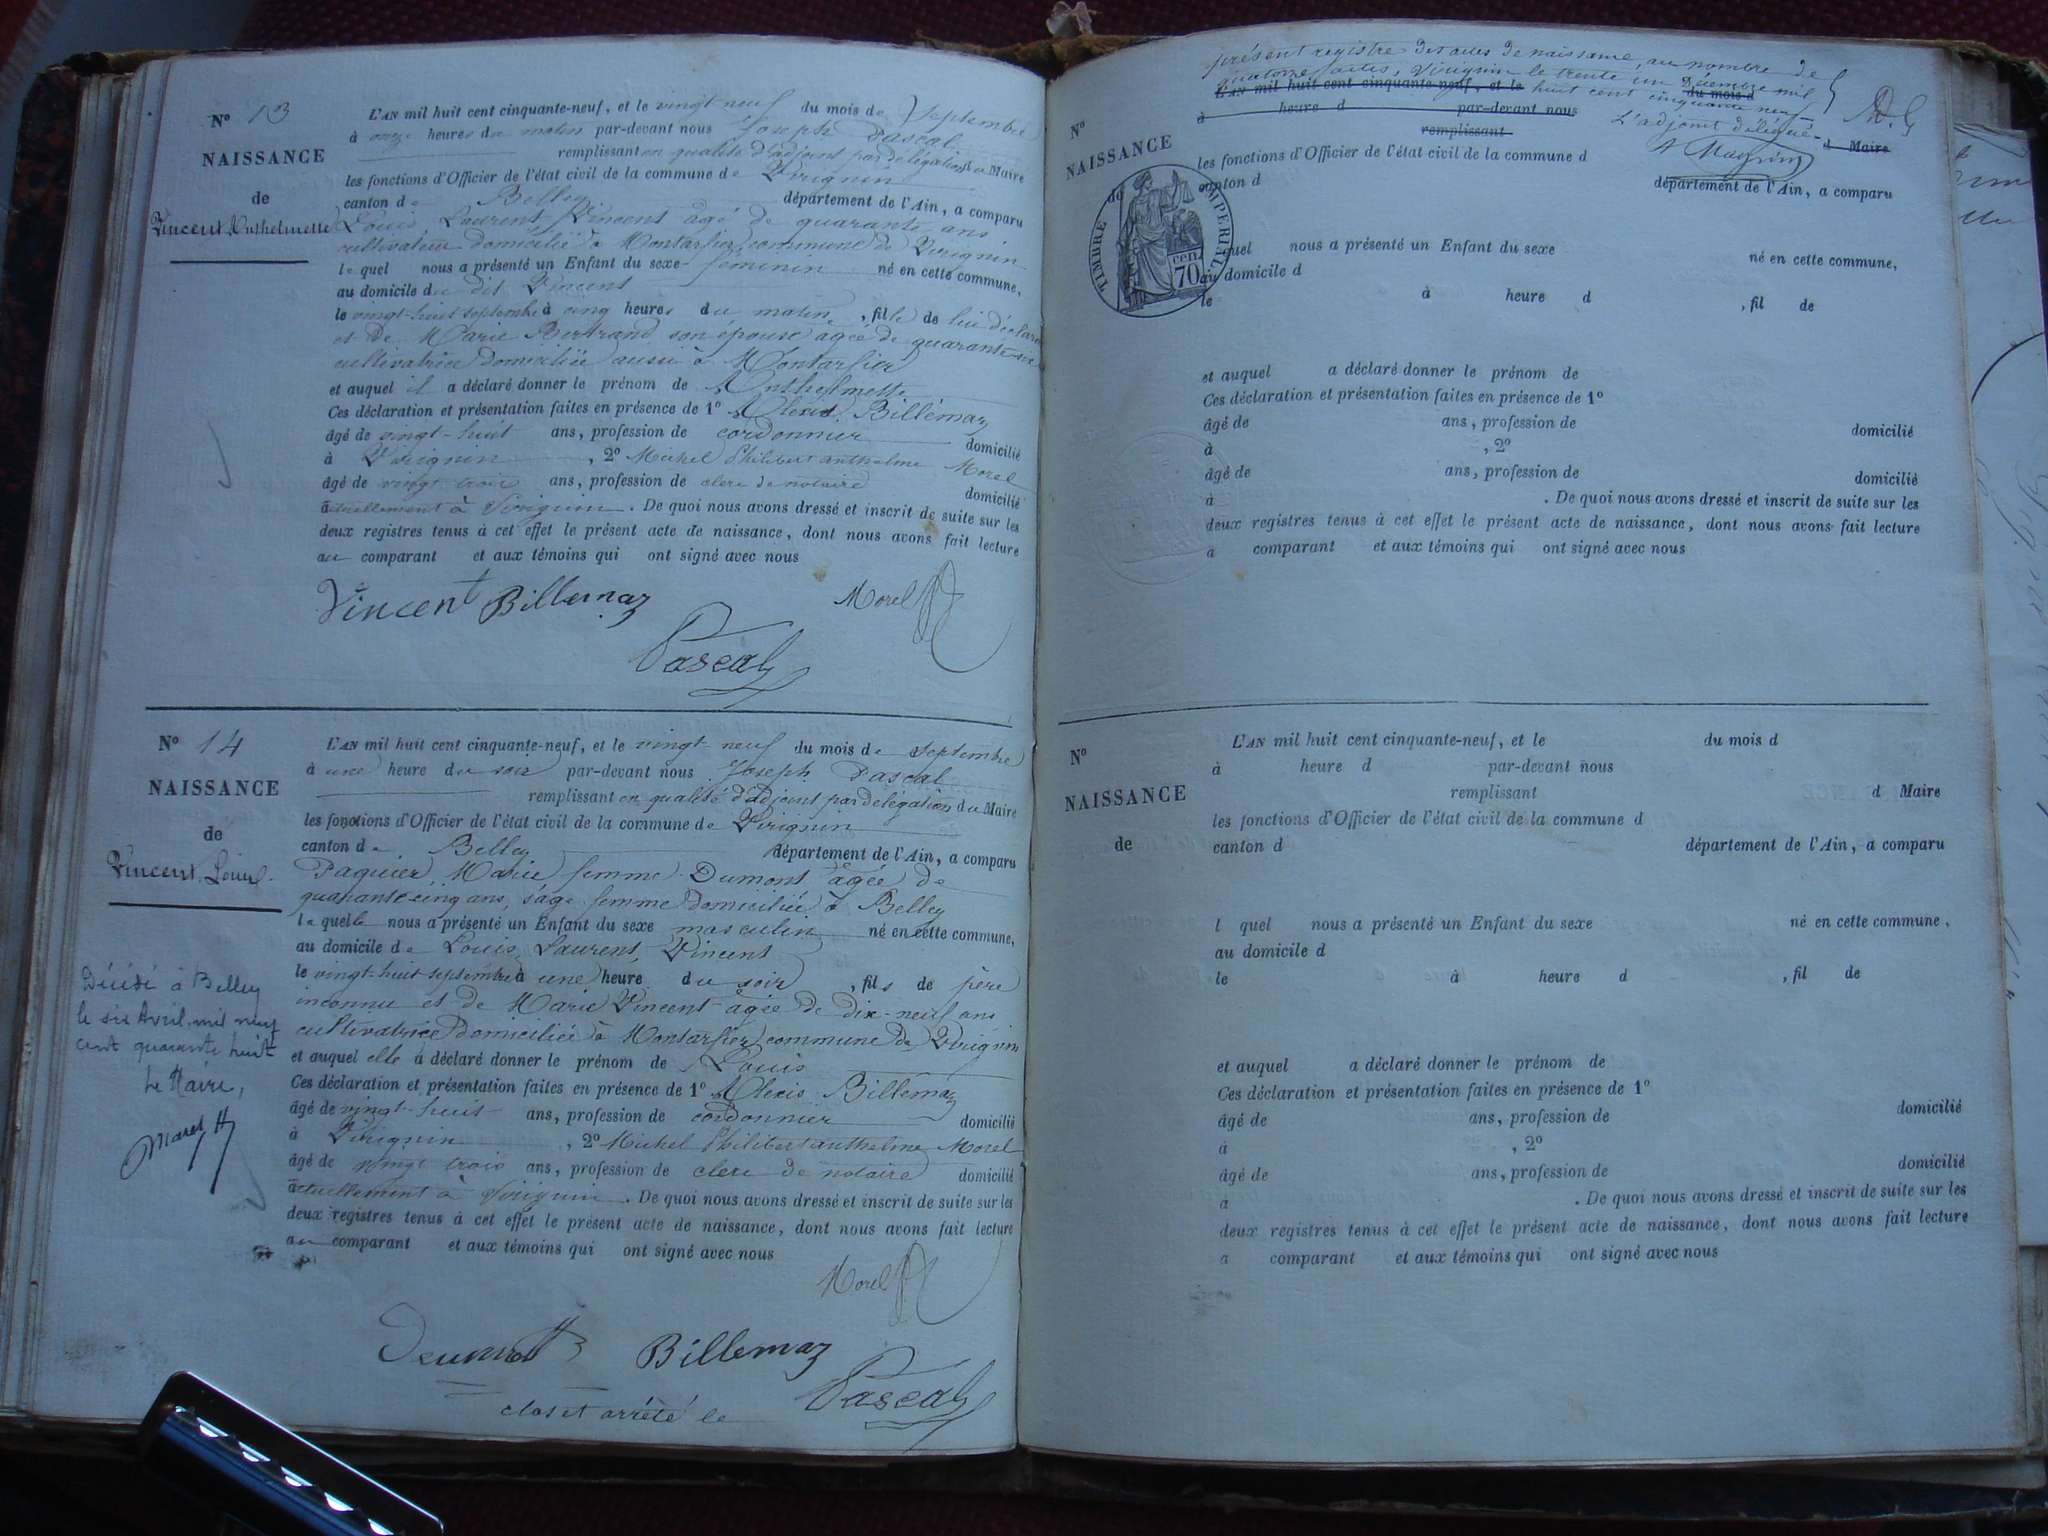 N° 13
NAISSANCE
de
Vincent Anthelmette
L'AN mil huit cent cinquante-neuf, et le vingt neuf du mois de septembre
à onze heures du matin par-devant nous Joseph Pascal
remplissant en qualité d'adjoint par délégation du Maire
les fonctions d'Officier de l'état civil de la commune de Virignin
canton de Belley département de l'Ain, a comparu
Louis Laurent Vincent âgé de quarante ans
cultivateur domicilié à Montarfier commune de Virignin
lequel nous a présenté un Enfant du sexe féminin né en cette commune,
au domicile du dit Vincent
le vingt-huit septembre à cinq heures du matin, fille de lui déclarant
et de Marie Bertrand son épouse agée de quarante-
cultivatrice domiciliée aussi à Montarfier
et auquel il a déclaré donner le prénom de Anthelmette
Ces déclaration et présentation faites en présence de 1° Alexis Billémaz
âgé de vingt-huit ans, profession de cordonnier domicilié
à Virignin, 2° Michel Philibert anthelme Morel
âgé de vingt trois ans, profession de clerc de notaire domicilié
actuellement à Virignin. De quoi nous avons dressé et inscrit de suite sur les
deux registres tenus à cet effet le présent acte de naissance, dont nous avons fait lecture
au comparant et aux témoins qui ont signé avec nous
Vincent Billemaz Morel
Pascal
N° 14
NAISSANCE
de
Vincent Louis
Décédé à Belley
le six Avril mil neuf
cent quarante huit
Le Maire,
L'AN mil huit cent cinquante-neuf, et le vingt-neuf du mois de septembre
à une heure du soir par-devant nous Joseph Pascal
remplissant en qualité d'adjoint par délégation du Maire
les fonctions d'Officier de l'état civil de la commune de Virignin
canton de Belley département de l'Ain, a comparu
Paquier Marie femme Dumont âgée de
quarante-cinq ans, sage femme domiciliée à Belley
laquelle nous a présenté un Enfant du sexe masculin né en cette commune,
au domicile de Louis Laurent Vincent
le vingt-huit septembre à une heure du soir, fils de père
inconnu et de Marie Vincent agée de dix-neuf ans
cultivatrice domiciliée à Montarfier commune de Virignin
et auquel elle a déclaré donner le prénom de Louis
Ces déclaration et présentation faites en présence de 1° Alexis Billémaz
âgé de vingt-huit ans, profession de cordonnier domicilié
à Virignin, 2° Michel Philibert anthelme Morel
âgé de vingt trois ans, profession de clerc de notaire domicilié
actuellement à Virignin. De quoi nous avons dressé et inscrit de suite sur les
deux registres tenus à cet effet le présent acte de naissance, dont nous avons fait lecture
au comparant et aux témoins qui ont signé avec nous
Morel
Billemaz
Pascal
clos et arrêté le
présent registre des actes de naissance, au nombre de
quatorze actes, Virignin le trente un Décembre mil
L'AN mil huit cent cinquante-neuf, et le huit cent cinquante neuf du mois d
à heure d par-devant nous L'adjoint délégué
remplissant d Maire
N°
NAISSANCE
de
TIMBRE IMPERIAL
70 cen.
les fonctions d'Officier de l'état civil de la commune d
canton d département de l'Ain, a comparu
quel nous a présenté un Enfant du sexe né en cette commune,
au domicile d
le à heure d , fil de
et auquel a déclaré donner le prénom de
Ces déclaration et présentation faites en présence de 1°
âgé de ans, profession de domicilié
à , 2°
âgé de ans, profession de domicilié
à . De quoi nous avons dressé et inscrit de suite sur les
deux registres tenus à cet effet le présent acte de naissance, dont nous avons fait lecture
a comparant et aux témoins qui ont signé avec nous
N°
NAISSANCE
de
L'AN mil huit cent cinquante-neuf, et le du mois d
à heure d par-devant nous
remplissant d Maire
les fonctions d'Officier de l'état civil de la commune d
canton d département de l'Ain, a comparu
l quel nous a présenté un Enfant du sexe né en cette commune,
au domicile d
le à heure d , fil de
et auquel a déclaré donner le prénom de
Ces déclaration et présentation faites en présence de 1°
âgé de ans, profession de domicilié
à , 2°
âgé de ans, profession de domicilié
a . De quoi nous avons dressé et inscrit de suite sur les
deux registres tenus à cet effet le présent acte de naissance, dont nous avons fait lecture
a comparant et aux témoins qui ont signé avec nous